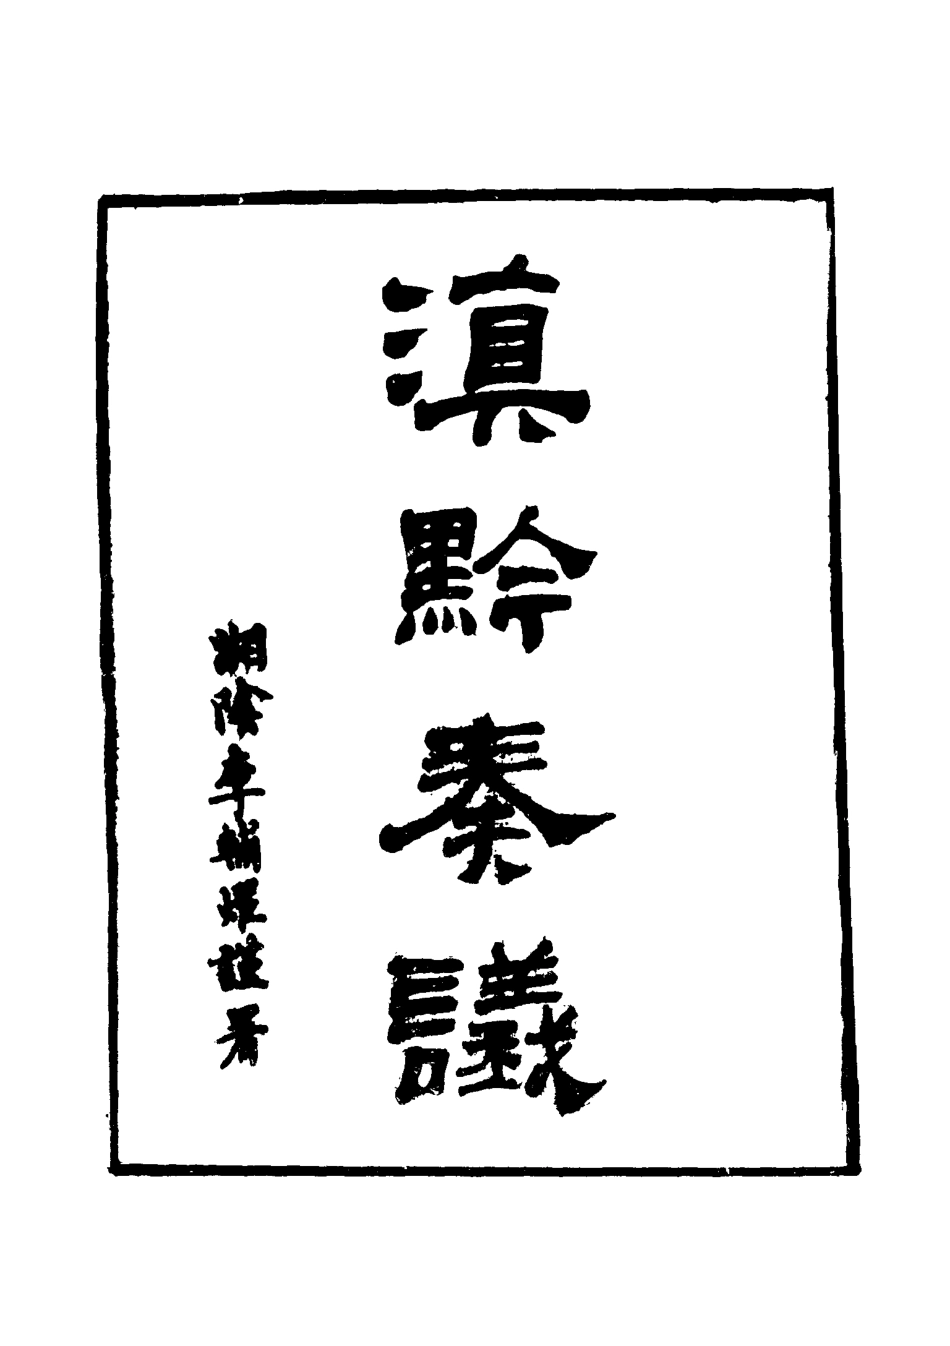 滇黔奏議
湘陰李輔燿謹署